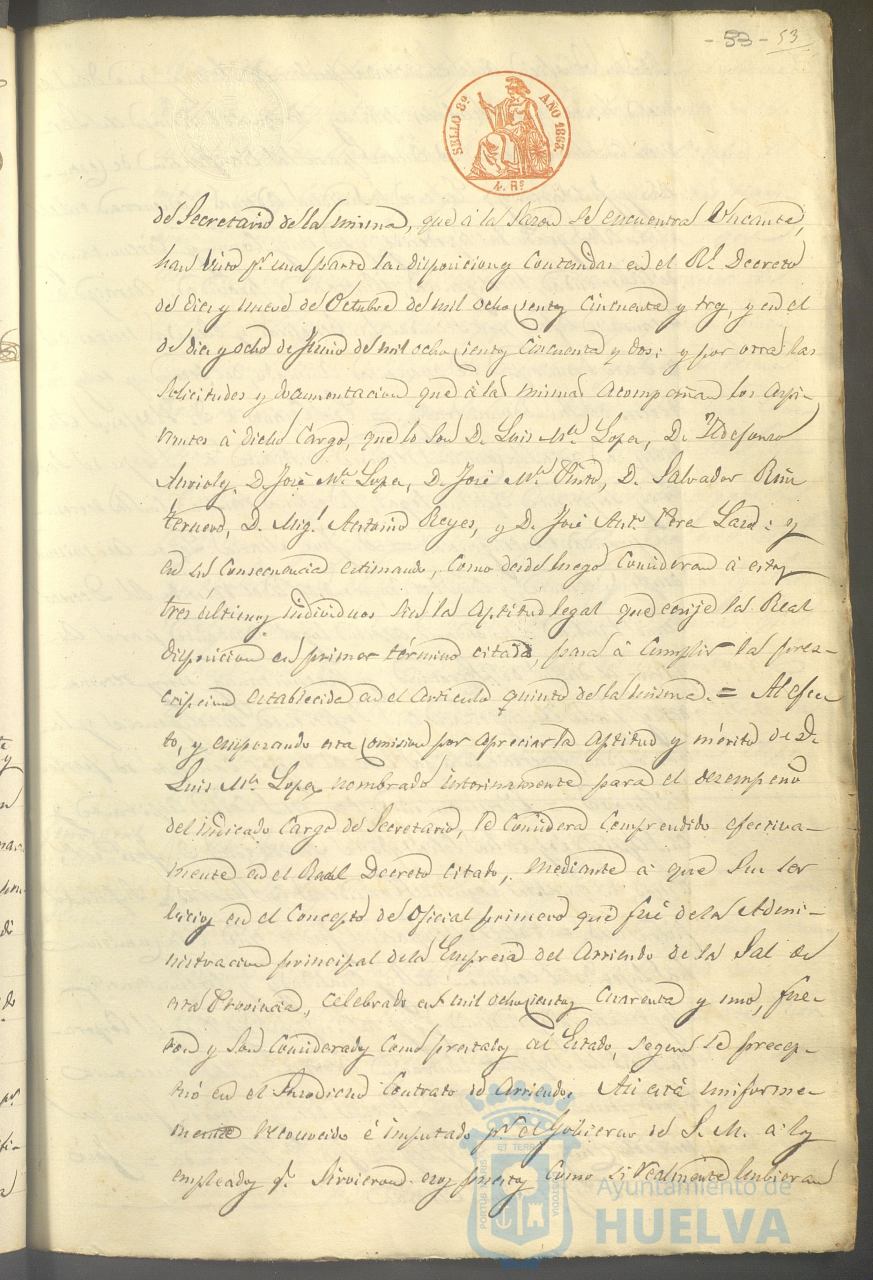 - 53 - 53
SELLO 8º AÑO 1867.
4. Rs
de Secretario de la misma, que á la sazon se encuentra Vacante,
han visto pr una parte las disposiciones contenidas en el Rl Decreto
de diez y nueve de Octubre de mil ocho cientos cincuenta y tres, y en el
de diez y ocho de Junio de mil ocho cientos cincuenta y dos; y por otra las
solicitudes y documentacion que á la misma acompañan los aspi-
rantes á dicho Cargo, que lo son D. Luis Ma Lopez, D. Ildefonso
D. José Ma Lopez, D. José Ma Pinto, D. Salvador
D. Migl Antonio Reyes, y D. José Anto Vera Lazo: y
en su consecuencia estimando, como desde luego consideran á estos
tres últimos individuos sin la aptitud legal que exije la Real
disposicion en primer término citada, para á cumplir la pres-
cripcion establecida en el articulo quinto de la misma. = Al efec-
to, y empezando esta comision por apreciar la aptitud y mérito de D.
Luis Ma Lopez nombrado interinamente para el desempeño
del indicado Cargo de Secretario, le considera comprendido efectiva-
mente en el Real Decreto citado, mediante á que sus ser
vicios en el concepto de Oficial primero que fué de la Admi-
nistracion principal de la Empresa del Arriendo de la Sal de
esta Provincia, celebrado en mil ochocientos cuarenta y uno, fue-
ron y son considerados como prestados al Estado, segun se precep-
tuó en el susodicho contrato de Arriendo. Asi está uniforme-
mente reconocido é imputado pr el Gobierno de S. M. á los
empleados qe sirvieron esos puestos como si realmente hubieran
PORTUS MARIS ET TERRAE CUSTODIA
Ayuntamiento de
HUELVA